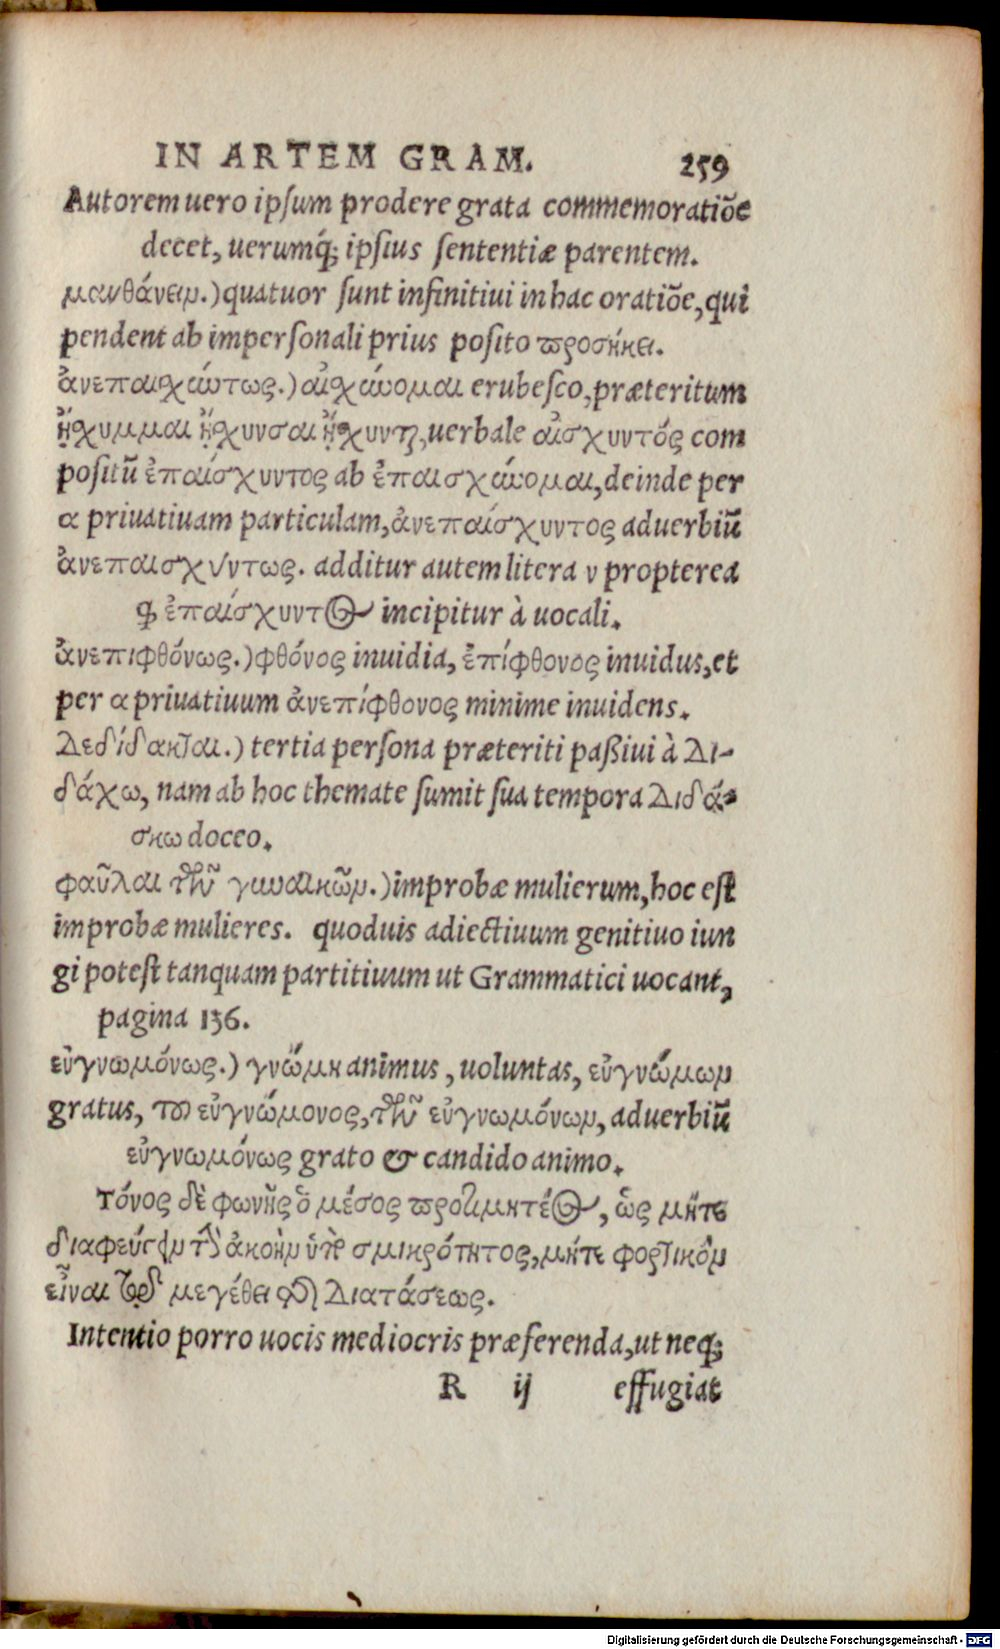 IN ARTEM GRAM. 259
Autorem uero ipsum prodere grata commemoratiõe
decet, uerumq́; ipsius sententiæ parentem.
μανθάνειν.) quatuor sunt infinitiui in hac oratiõe, qui
pendent ab impersonali prius posito προσήκει.
ἀνεπαισχώτως.) αἰσχύνομαι erubesco, præteritum
ᾔσχυμμαι ᾔσχυνσαι ᾔσχυνται, uerbale αἰσχυντός com
positũ ἐπαίσχυντος ab ἐπαισχύνομαι, deinde per
α priuatiuam particulam, ἀνεπαίσχυντος aduerbiũ
ἀνεπαισχύντως. additur autem litera ν propterea
ꝙ ἐπαίσχυντος incipitur à uocali.
ἀνεπιφθόνως.) φθόνος inuidia, ἐπίφθονος inuidus, et
per α priuatiuum ἀνεπίφθονος minime inuidens.
Δεδίδακται.) tertia persona præteriti paßiui à Δι-
δάχω, nam ab hoc themate sumit sua tempora Διδά-
σκω doceo.
φαῦλαι τῶν γυναικῶν.) improbæ mulierum, hoc est
improbæ mulieres. quoduis adiectiuum genitiuo iun
gi potest tanquam partitiuum ut Grammatici uocant,
pagina 136.
εὐγνωμόνως.) γνώμη animus, uoluntas, εὐγνώμων
gratus, τοῦ εὐγνώμονος, τῶν εὐγνωμόνων, aduerbiũ
εὐγνωμόνως grato & candido animo.
Τόνος δὲ φωνῆς ὁ μέσος προτιμητέος, ὡς μήτε
διαφεύγειν τὴν ἀκοὴν ὑπὸ σμικρότητος, μήτε φορτικὸν
εἶναι τῷ μεγέθει τῆς Διατάσεως.
Intentio porro uocis mediocris præferenda, ut neq;
R ij effugiat
Digitalisierung gefördert durch die Deutsche Forschungsgemeinschaft - DFG